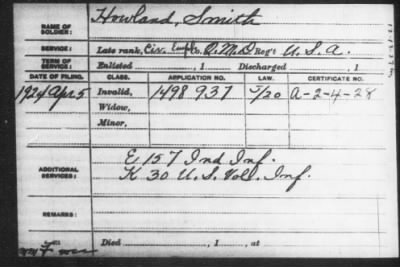 NAME OF SOLDIER: Howland, Smith
SERVICE: Late rank, Civ. Empl Co. Q.M.D Reg't U.S.A.
TERM OF SERVICE: Enlisted , 1 Discharged , 1
DATE OF FILING. CLASS. APPLICATION NO. LAW. CERTIFICATE NO.
1924 Apr 5 Invalid, 1498 937 5/20 A-2-4-28
Widow,
Minor,
ADDITIONAL SERVICES: E. 157 Ind Inf.
K 30 U.S. Voll. Inf.
REMARKS:
Died , 1 , at